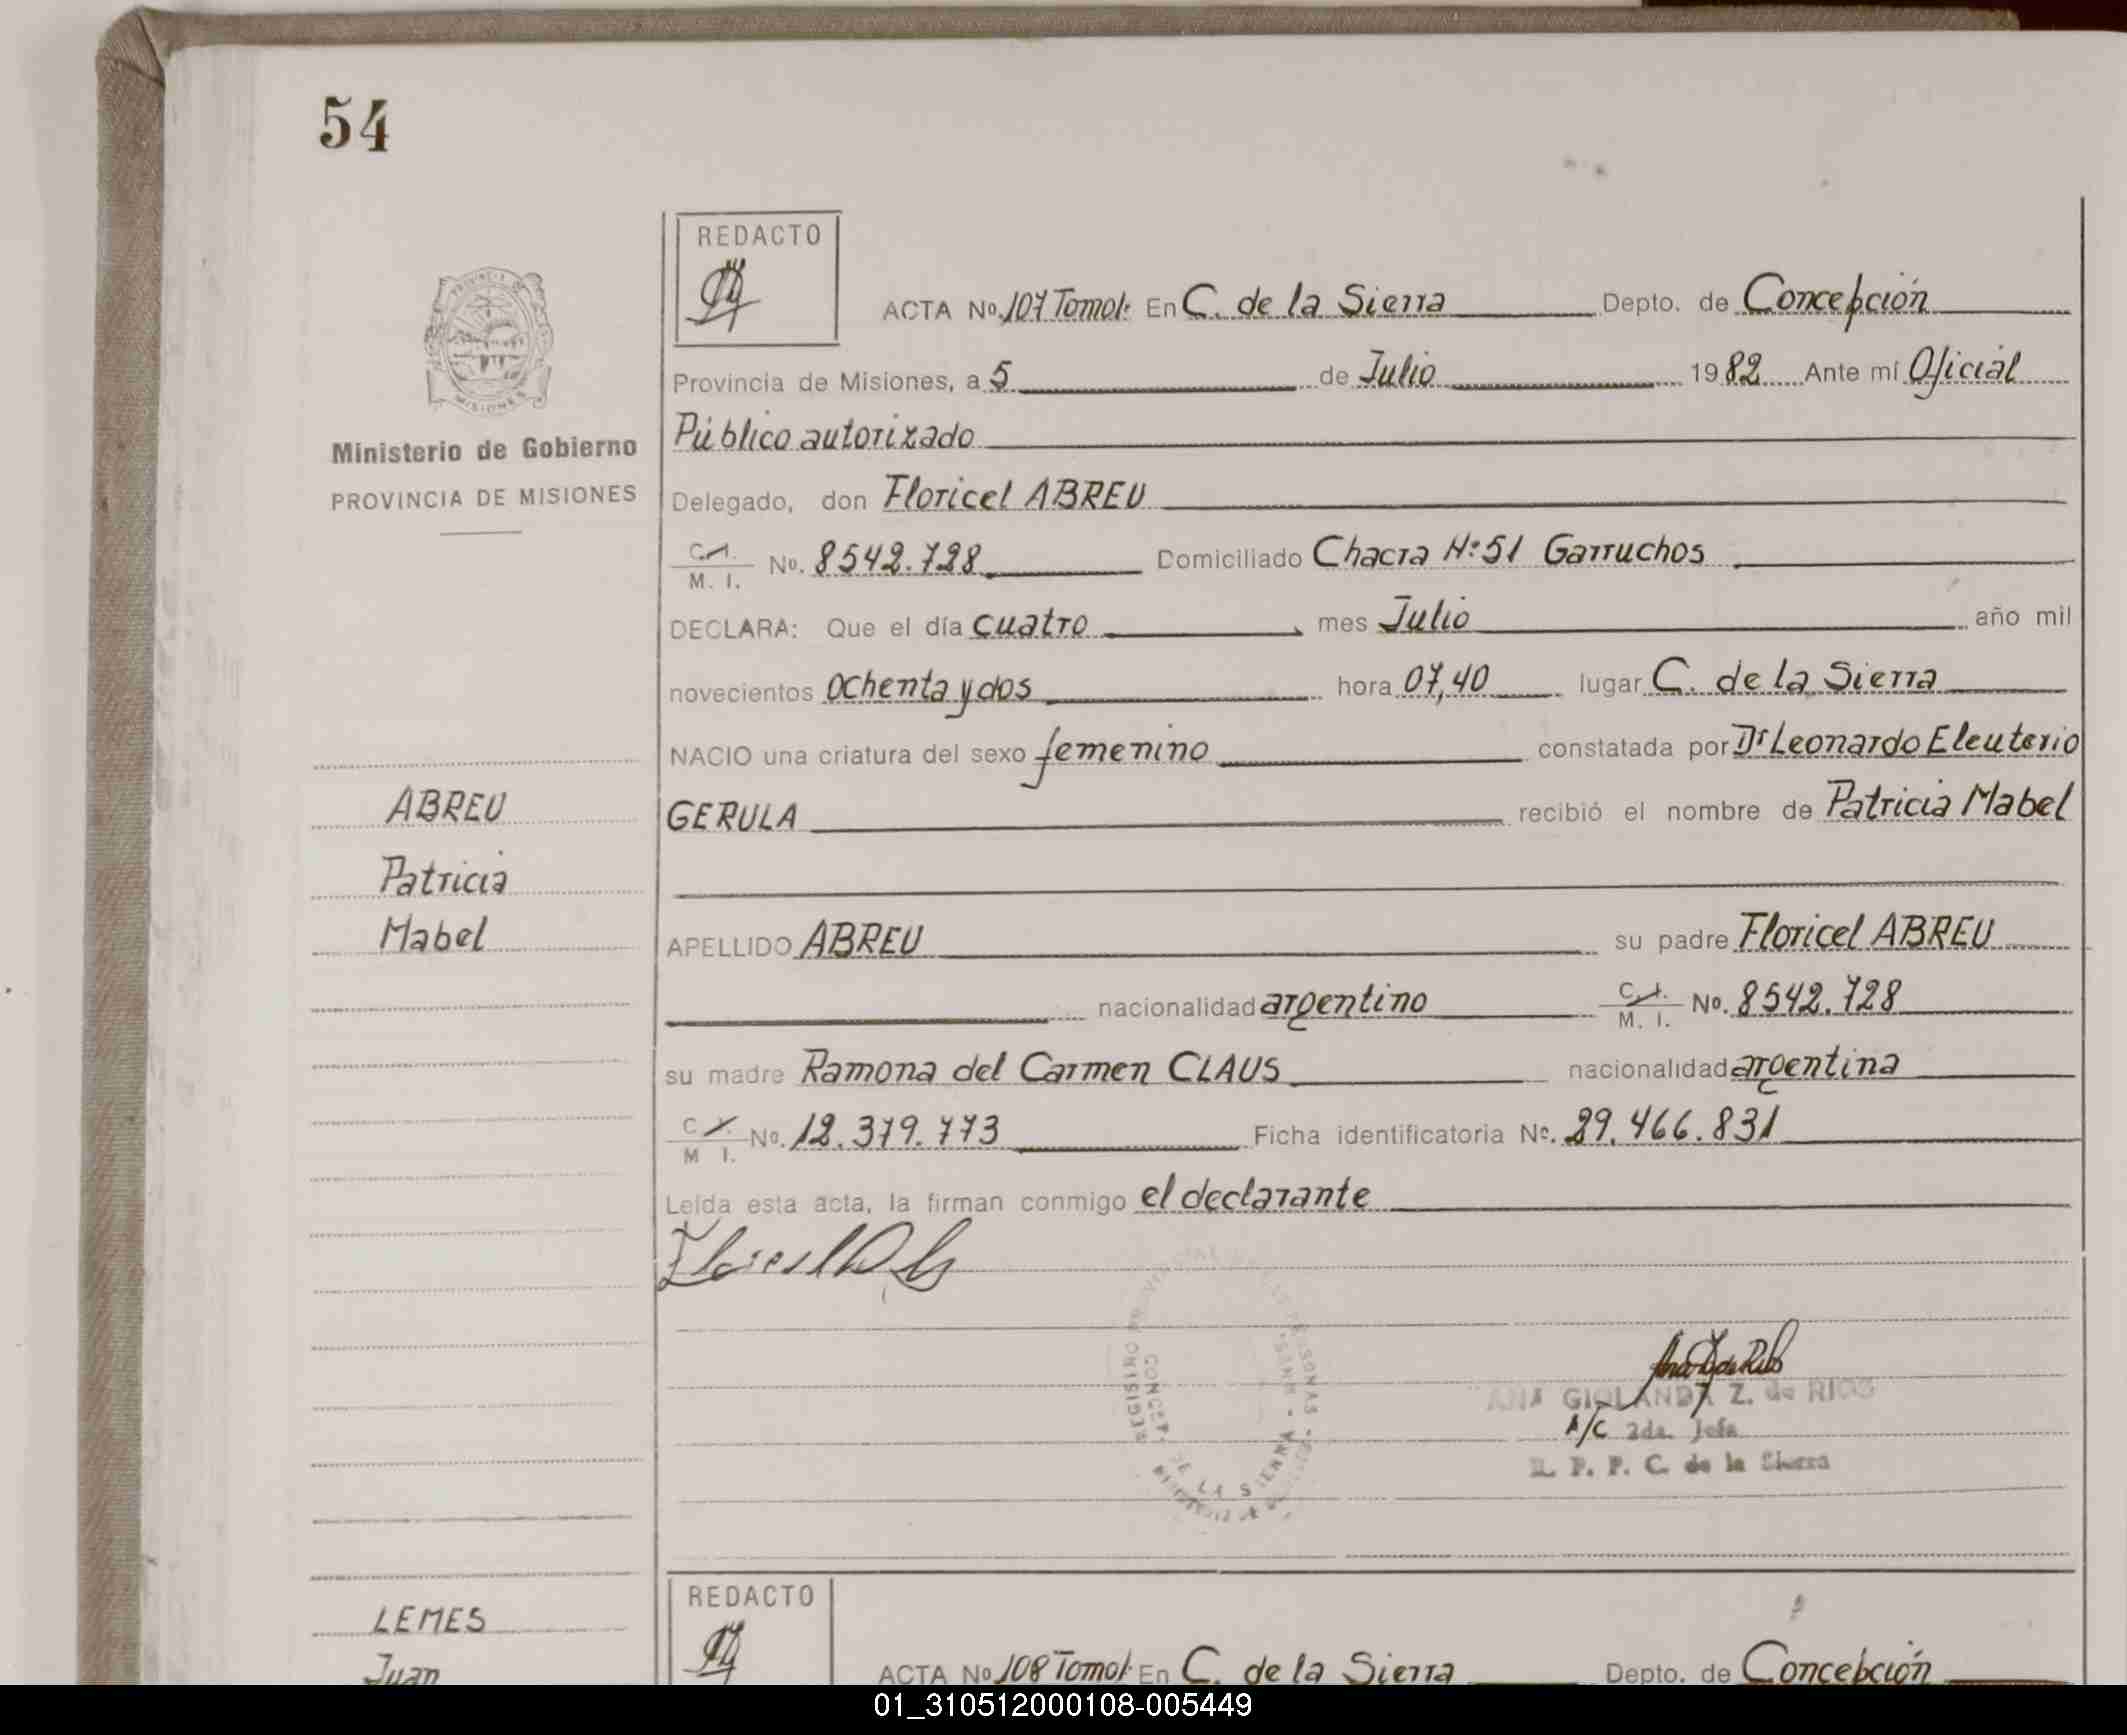 54
REDACTO
ACTA No. 107 Tomo I: En C. de la Sierra Depto. de Concepción
Provincia de Misiones, a 5 de Julio 1982 Ante mí Oficial
Público autorizado
Ministerio de Gobierno
PROVINCIA DE MISIONES
Delegado, don Floricel ABREU
C.I. M. I. No. 8542.728 Domiciliado Chacra Nº 51 Garruchos
DECLARA: Que el día cuatro mes Julio año mil
novecientos ochenta y dos hora 07,40 lugar C. de la Sierra
NACIO una criatura del sexo femenino constatada por Dr Leonardo Eleuterio
GERULA recibió el nombre de Patricia Mabel
ABREU
Patricia
Mabel
APELLIDO ABREU su padre Floricel ABREU
nacionalidad argentino C.I. M. I. No. 8542.728
su madre Ramona del Carmen CLAUS nacionalidad argentina
C. I. M I. No. 12.379.773 Ficha identificatoria No. 29.466.831
Leída esta acta, la firman conmigo el declarante
ANA GIOLANDA Z. de RIOS
A/C 2da. Jefa
R. P. P. C. de la Sierra
LEMES
Juan
REDACTO
ACTA No 108 Tomo I: En C. de la Sierra Depto. de Concepción
01_310512000108-005449